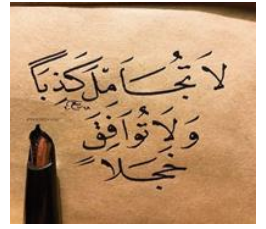 لَا تُجَامِّلَ كَذِباً
وَلَا تُوَافِقَ
خَجَلاً